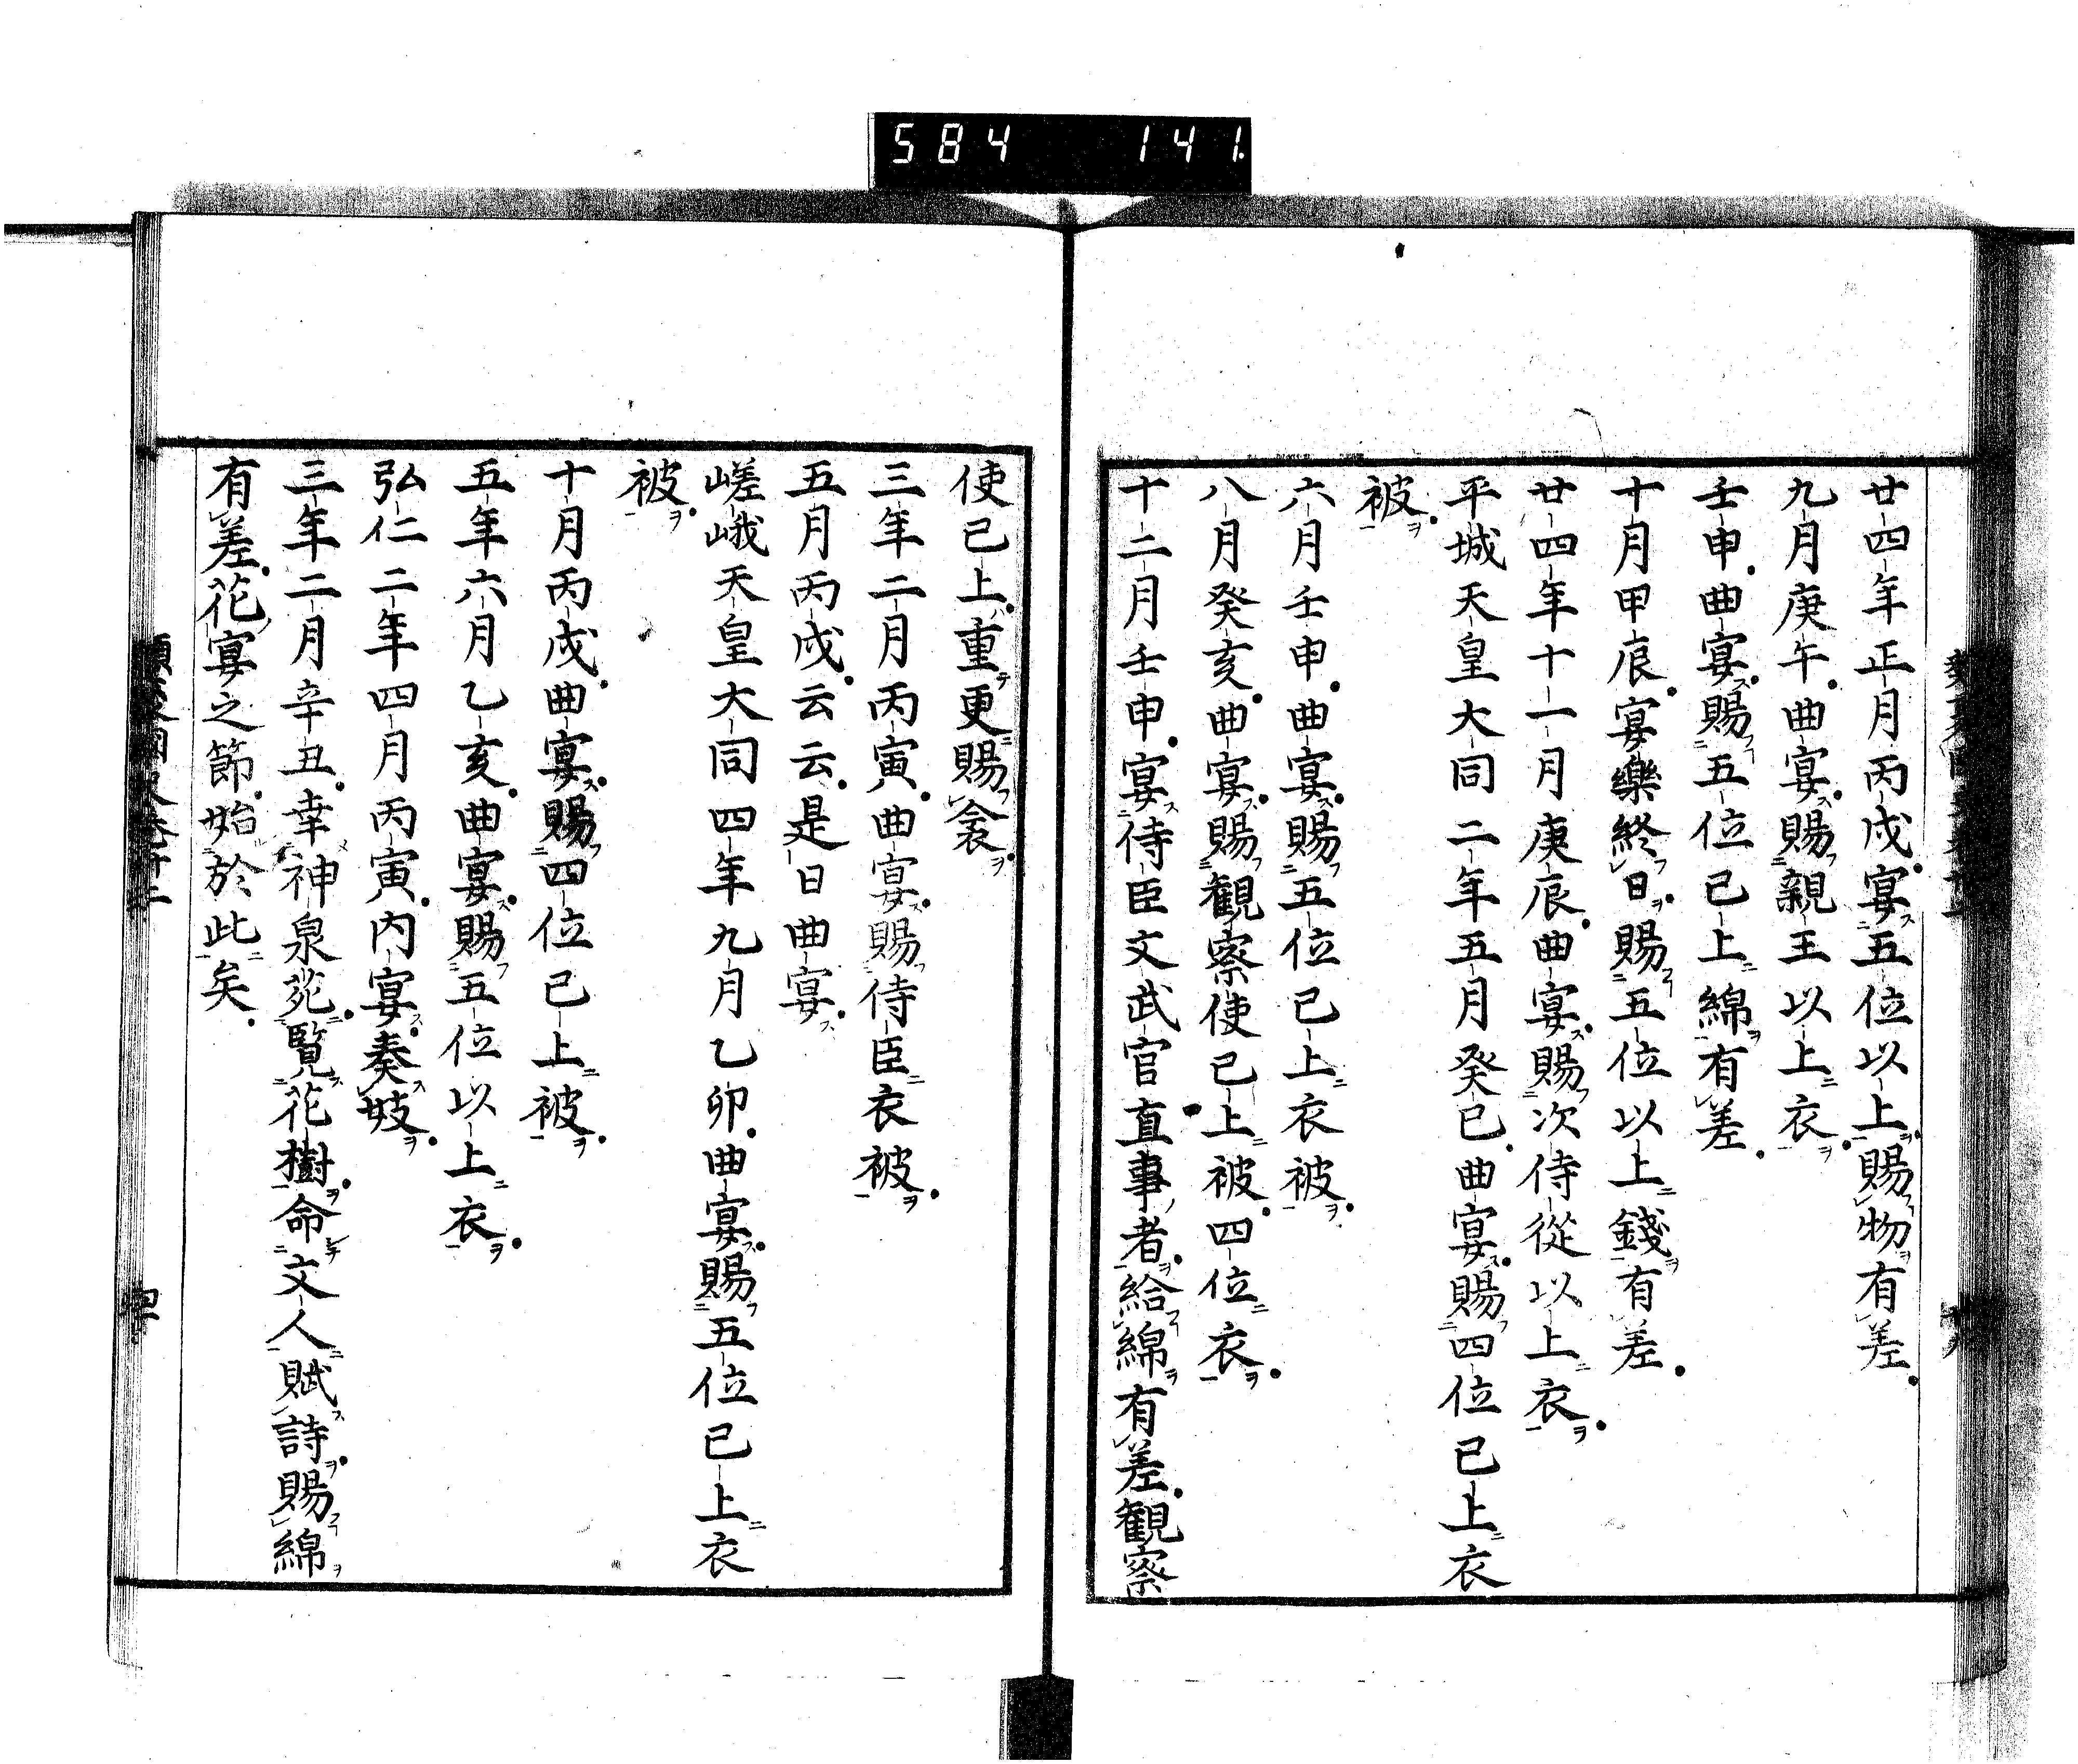 584 141
廿四年正月丙戌宴五位以上賜物有差
九月庚午曲宴賜親王以上衣
壬申曲宴賜五位已上綿有差
十月甲辰宴樂終日賜五位以上錢有差
廿四年十一月庚辰曲宴賜次侍從以上衣
平城天皇大同二年五月癸巳曲宴賜四位已上衣
被
六月壬申曲宴賜五位已上衣被
八月癸亥曲宴賜觀察使已上被四位衣
十二月壬申宴侍臣文武官直事者給綿有差觀察
使已上重更賜衾
三年二月丙寅曲宴賜侍臣衣被
五月丙戌云云是日曲宴
嵯峨天皇大同四年九月乙卯曲宴賜五位已上衣
被
十月丙戌曲宴賜四位已上被
五年六月乙亥曲宴賜五位以上衣
弘仁二年四月丙寅内宴奏妓
三年二月辛丑幸神泉苑覽花樹命文人賦詩賜綿
有差花宴之節始於此矣